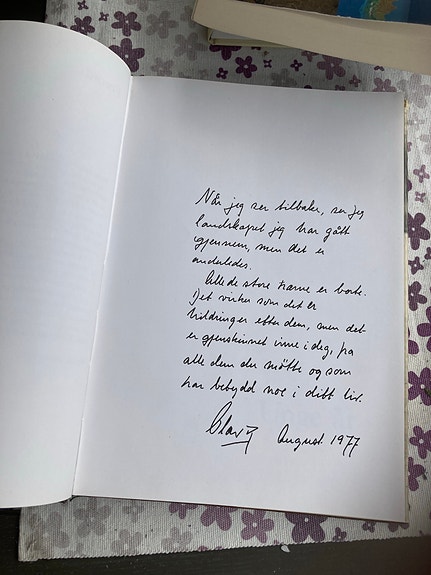 Når jeg ser tilbake, ser jeg
landskapet jeg har gått
gjennem, men det er
anderledes.
Alle de store trærne er borte.
Det virker som det er
hildringer efter dem, men det
er gjenskinnet inne i deg, fra
alle dem du møtte og som
har betydd noe i ditt liv.
August 1977